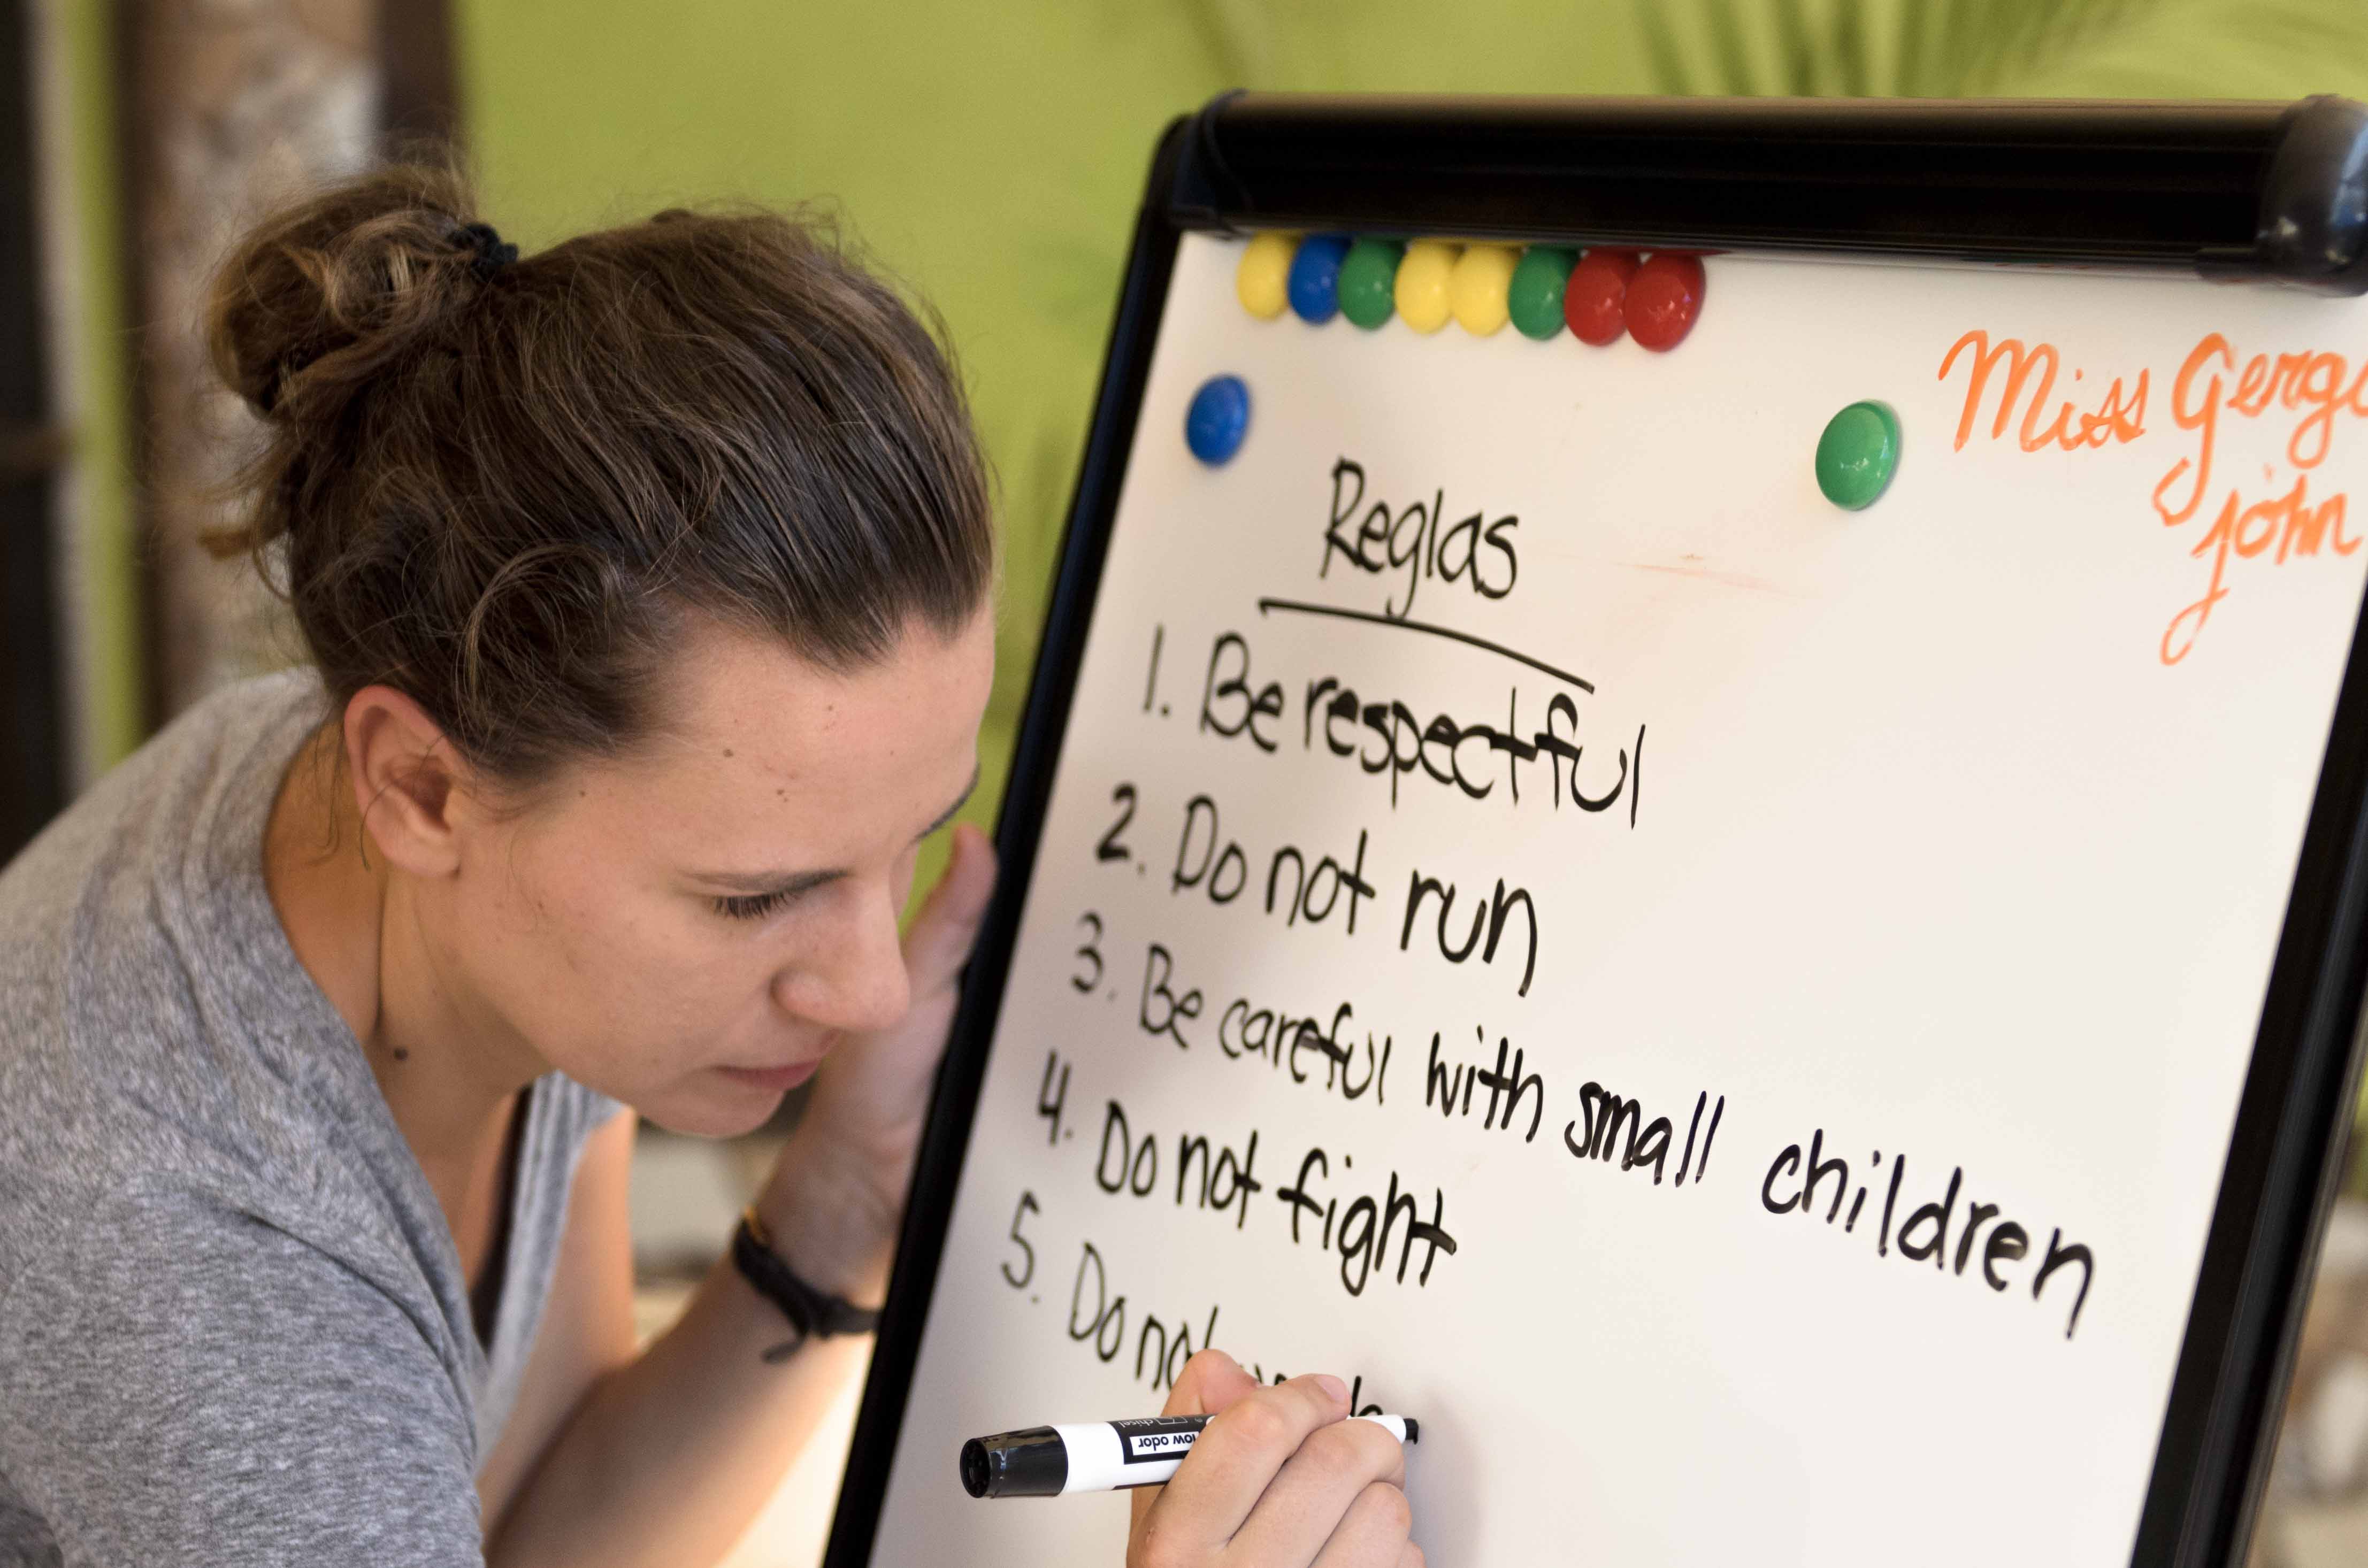 Miss
john
Reglas
1. Be respectful
2. Do not run
3. Be careful with small children
4. Do not fight
5. Do not
low odor
chisel